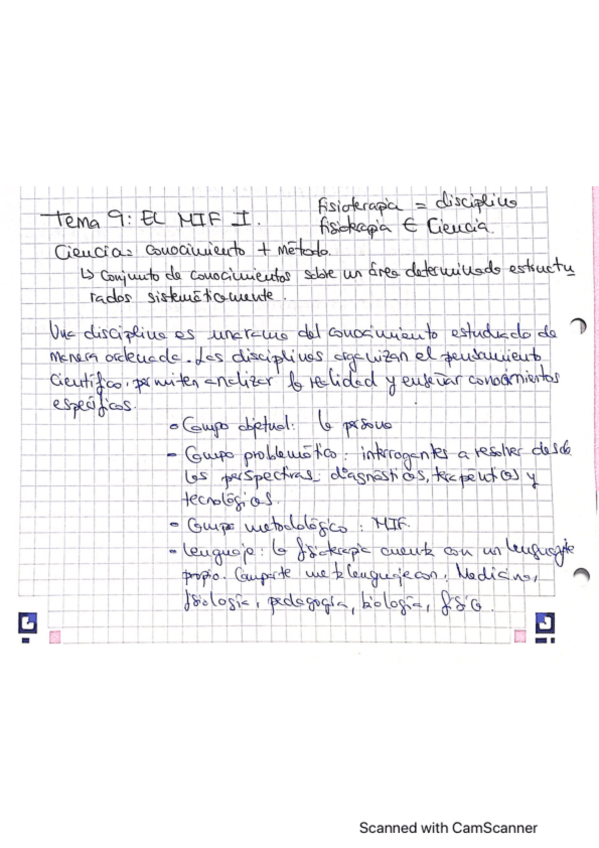 Tema 9: EL MIF I.
fisioterapia = disciplina
fisioterapia ∈ Ciencia.
Ciencia = conocimiento + método.
↳ Conjunto de conocimientos sobre un área determinada estructu
rados sistemáticamente.
Una disciplina es una rama del conocimiento estudiado de
manera ordenada. Las disciplinas organizan el pensamiento
científico, permiten analizar la realidad y enseñar conocimientos
específicos.
- Campo objetual: la persona
- Campo problemático: interrogantes a resolver desde
las perspectivas diagnósticas, terapéuticas y
tecnológicas.
- Campo metodológico: MIF.
- Lenguaje: la fisioterapia cuenta con un lenguaje
propio. Comparte metalenguaje con: Medicina,
fisiología, pedagogía, biología, física.
Scanned with CamScanner